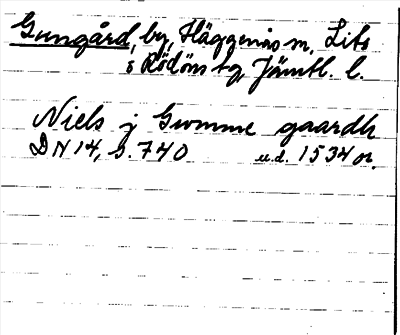 Gungård, by, Häggenås sn, Lits
& Rödöns tg, Jämtl. l.
Niels j Gwnnne gaardh
DN 14, s. 740 u.d. 1534 or.